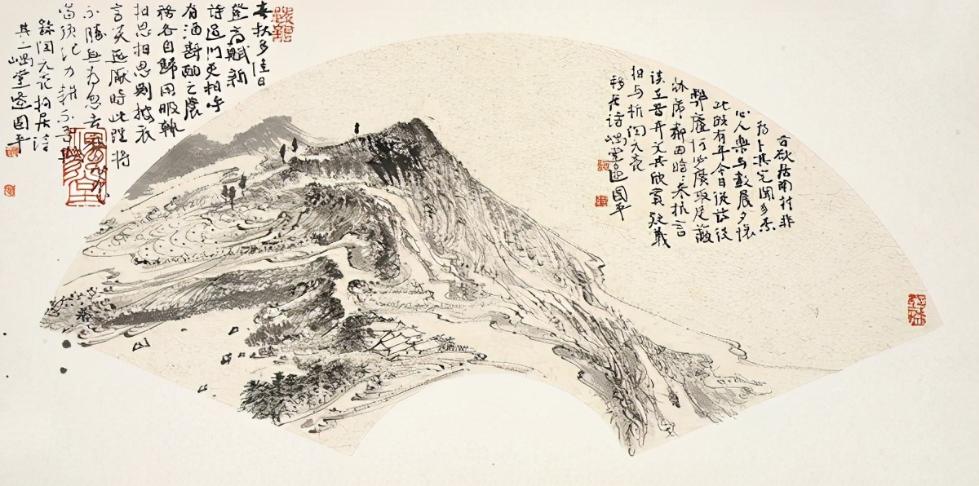 昔欲居南村非
为卜其宅闻多素
心人樂与數晨夕懷
此頗有年今日從茲役
弊廬何必廣取足蔽
牀席鄰曲時時來抗言
談在昔奇文共欣賞疑義
相与析陶元亮
移居詩堂國平
春秋多佳日
登高賦新
詩過門更相呼
有酒斟酌之農
務各自歸閒暇輒
相思相思則披衣
言笑無厭時此理將
不勝無為忽去
當須纪力耕不吾
錄陶元亮移居詩
其二堂國平